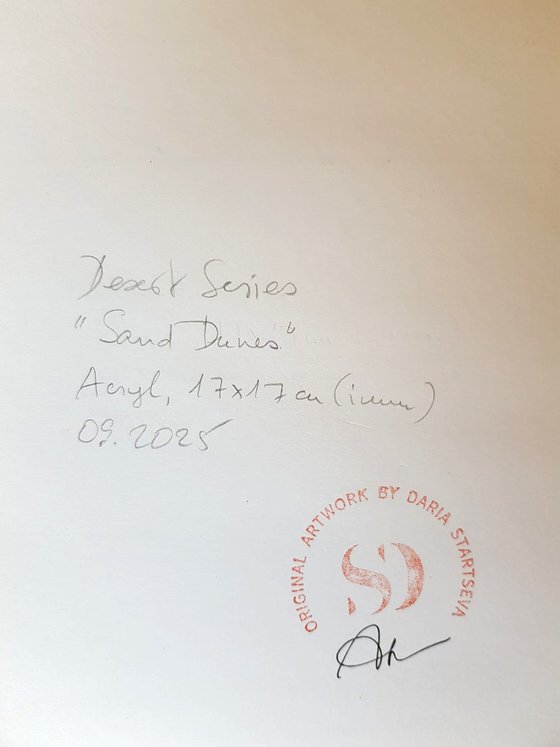 Desert Series
"Sand Dunes"
Acryl, 17x17 cm
09.2025
ORIGINAL ARTWORK BY DARIA STARTSEVA
SD